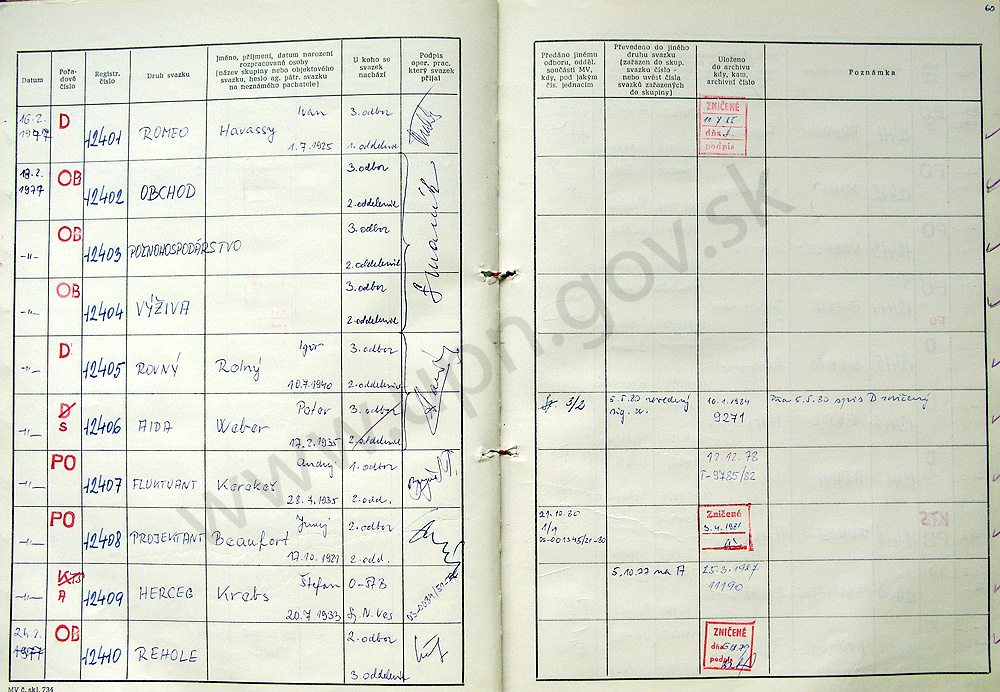 60
Datum
Pořa-
dové
číslo
Registr.
číslo
Druh svazku
Jméno, příjmení, datum narození
rozpracované osoby
(název skupiny nebo objektového
svazku, heslo ag. pátr. svazku
na neznámého pachatele)
U koho se
svazek
nachází
Podpis
oper. prac.
který svazek
přijal
Předáno jinému
odboru, odděl.
součásti MV,
kdy, pod jakým
čís. jednacím
Převedeno do jiného
druhu svazku
(zařazen do skup.
svazku číslo -
nebo uvést čísla
svazků zařazených
do skupiny)
Uloženo
do archívu
kdy, kam,
archivní číslo
Poznámka
16.2.
1977
D
12401
ROMEO
Ivan
Havassy
1.7.1925
3.odbor
1.oddelenie
ZNIČENÉ
dňa
podpis
18.2.
1977
OB
12402
OBCHOD
3.odbor
2.oddelenie
-"-
OB
12403
POĽNOHOSPODÁRSTVO
3.odbor
2.oddelenie
-"-
OB
12404
VÝŽIVA
3.odbor
2.oddelenie
-"-
D
12405
ROVNÝ
Igor
Rolný
10.7.1940
3.odbor
2.oddelenie
-"-
D
S
12406
AIDA
Peter
Weber
17.2.1935
3.odbor
2.oddelenie
3/2
5.5.80
10.1.1984
9271
dňa 5.5.80 spis D zničený
-"-
PO
12407
FLUKTUANT
Andrej
Kerekeš
28.7.1935
1.odbor
2.odd.
12.12.78
T-9785/82
-"-
PO
12408
PROJEKTANT
Juraj
Beaufort
17.10.1921
2.odbor
2.odd.
21.10.80
1/1
Zničené
3.4.1981
-"-
KTS
A
12409
HERCEG
Štefan
Krebs
20.7.1933
O-ŠTB
N. Ves
5.10.77 na A
25.3.1987
11190
24.2.
1977
OB
12410
REHOLE
2.odbor
3.oddelenie
ZNIČENÉ
dňa
podpis
MV č. skl. 734
www.upn.gov.sk